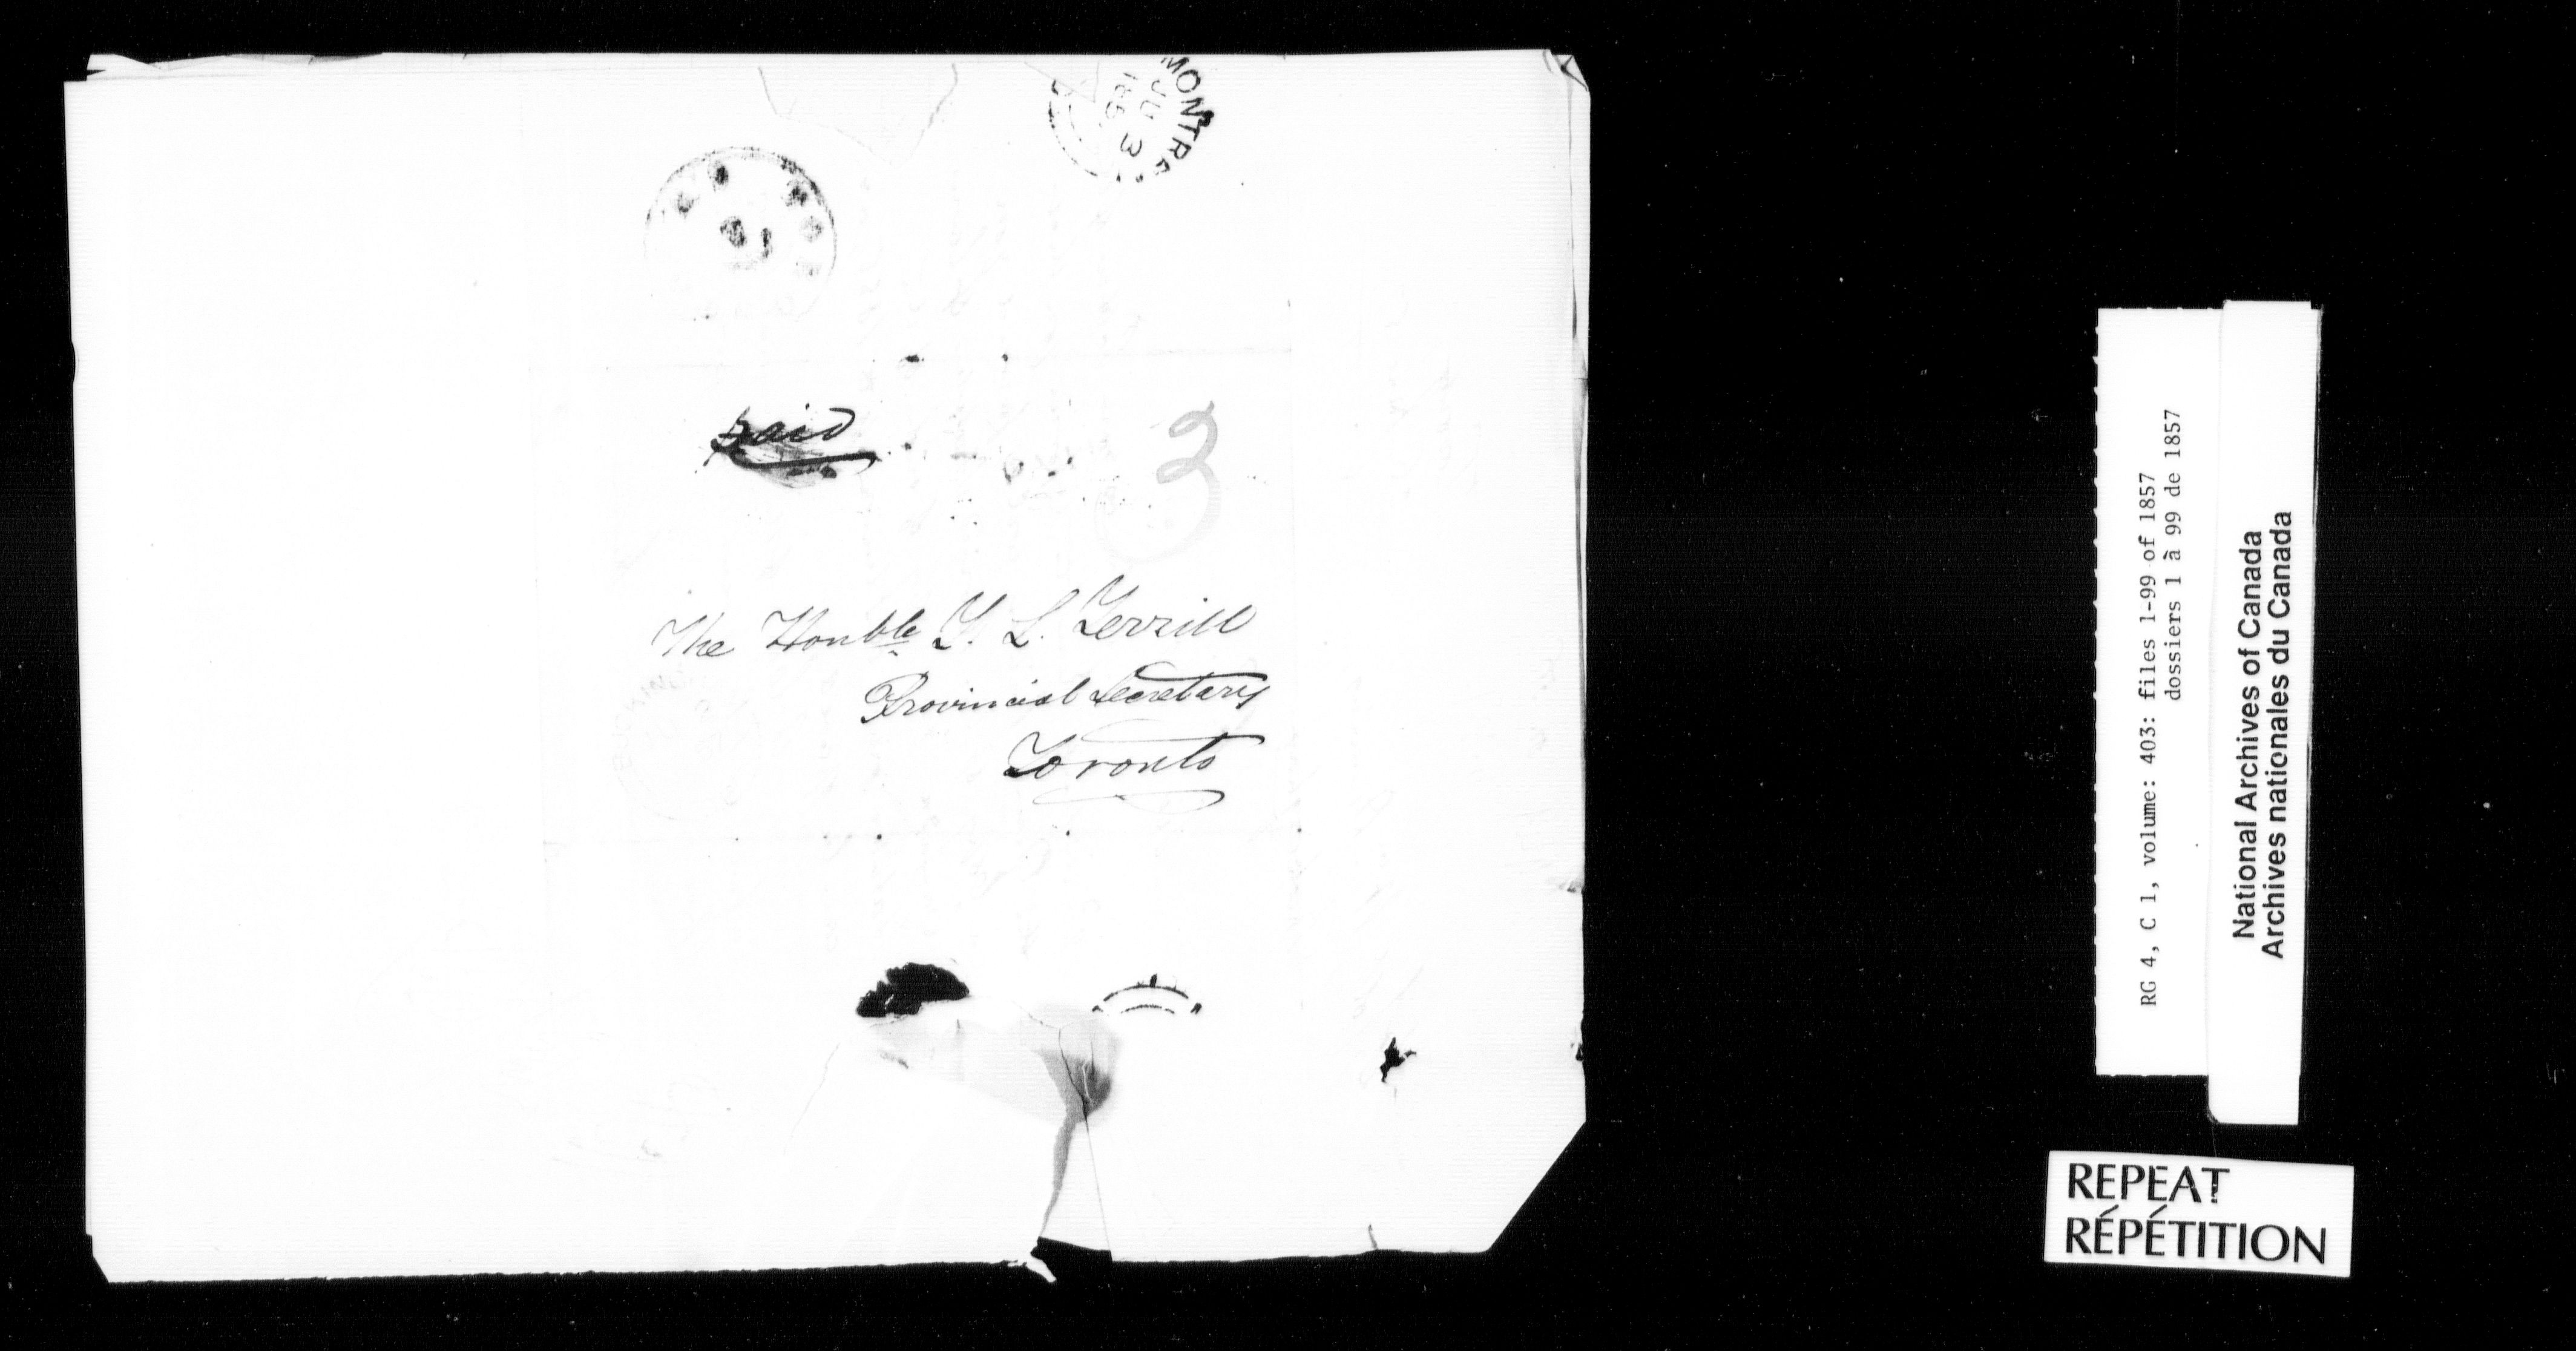 MONTR
JU 3
186
Paid
3
The Honble. T. L. Terrill
Provincial Secretary
Toronto
RG 4, C 1, volume: 403: files 1-99 of 1857
dossiers 1 à 99 de 1857
National Archives of Canada
Archives nationales du Canada
REPEAT
RÉPÉTITION